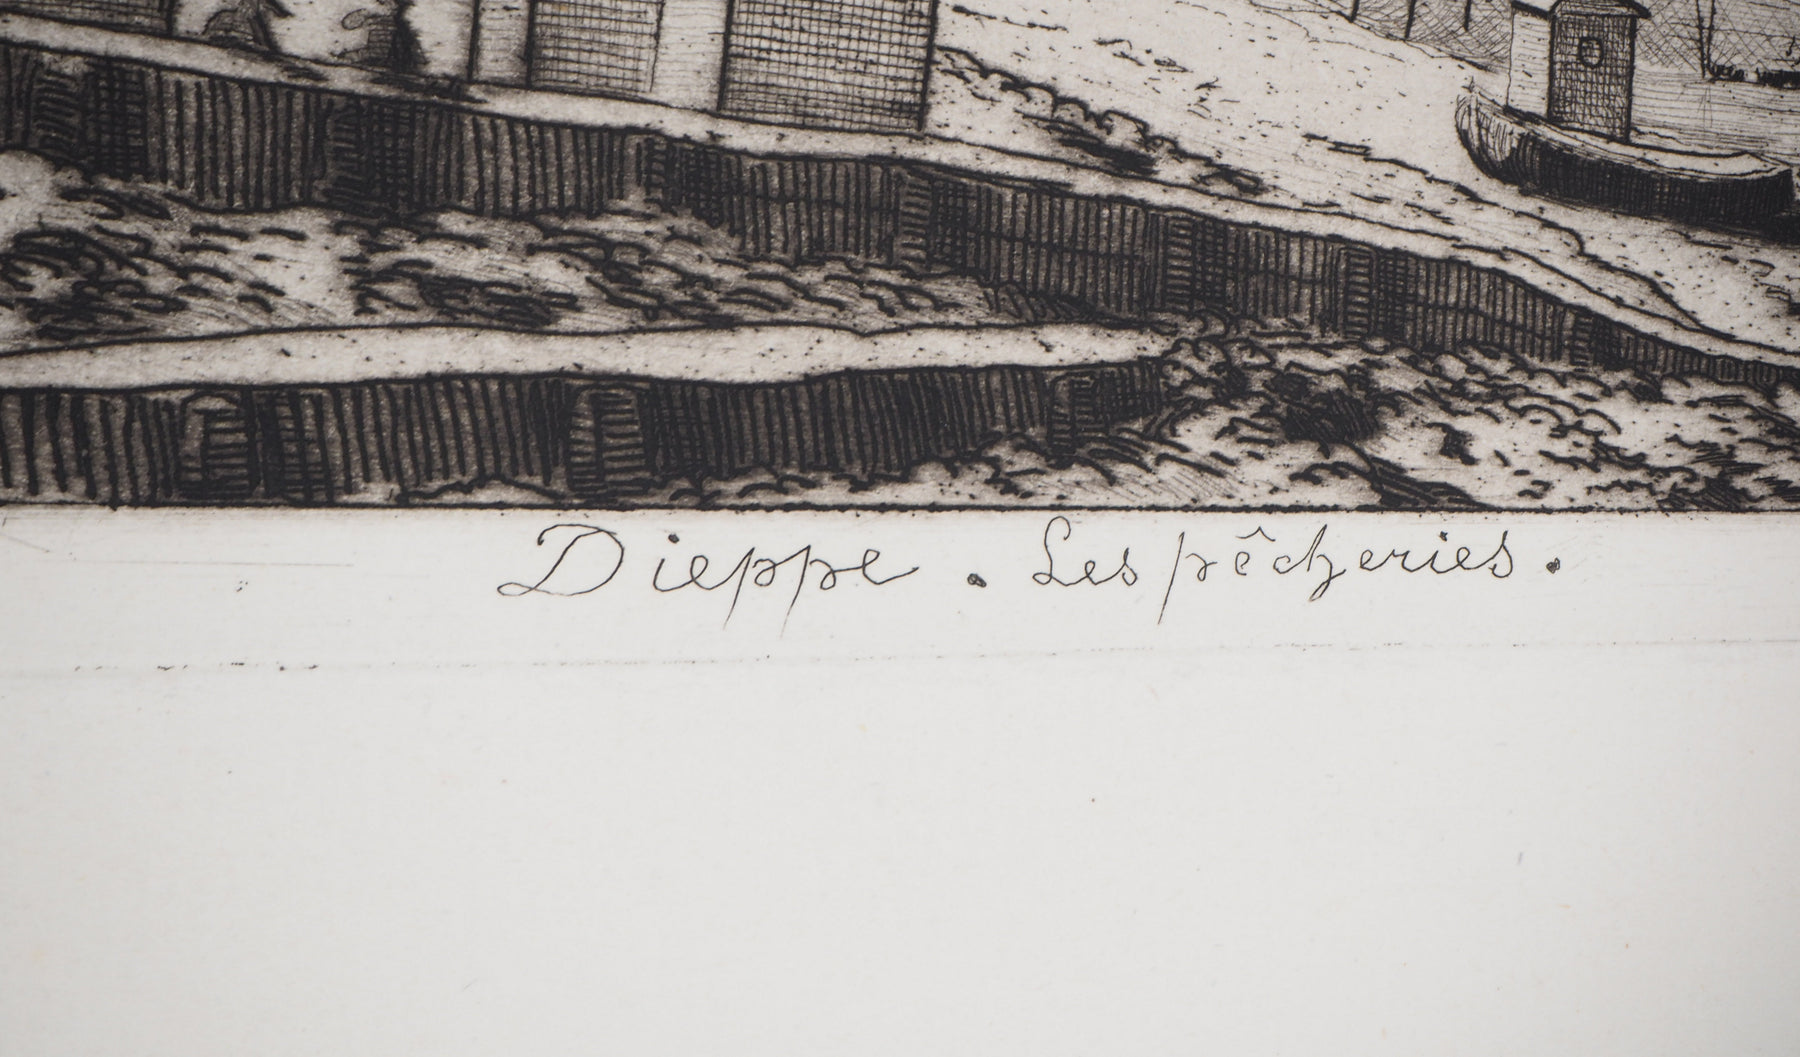 Dieppe . Les pêcheries .